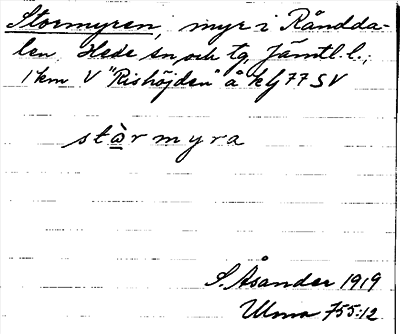 Stormyren, myr i Råndda-
len, Hede sn och tg, Jämtl. l.;
1 km V "Rishöjden" å kbl 77 SV
stàrmyra
S. Åsander 1919
Ulma 755:12